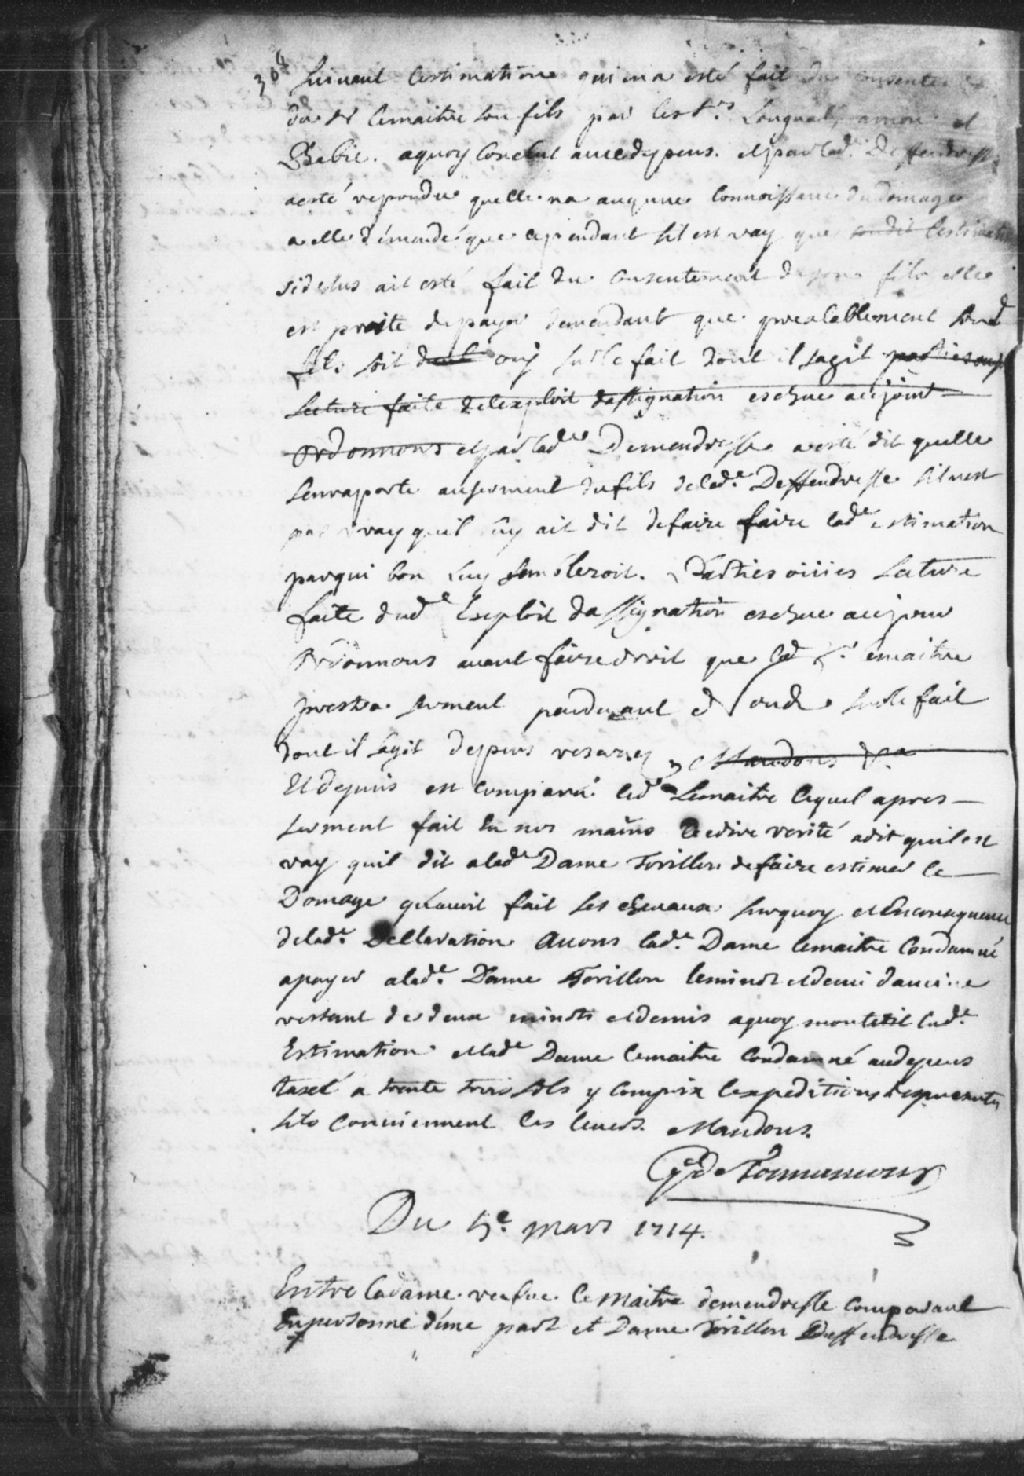 308
suivant lestimation qui en a esté fait du consente
du Sr lemaitre son fils par les srs. Longual, amou et
Babie. aquoy Conclut avec depens. et par lade. Deffendresse
a esté repondu quelle na aucune Connoissance du domage
a elle demandé que cependant sil est vray que ledit lestimation
sidesus ait esté fait du Consentement de son fils elle
est preste de payer demendant que prealablement sond
fils soit ouy sur le fait dont il sagit parties ouyes
Lecture faite de lexploit dassignation eschue acejour
Ordonnons et par lade Demendresse a esté dit quelle
sen raporte au serment du fils de lade. Deffendresse sil nest
pas vray quil luy ait dit de faire faire lade estimation
par qui bon luy sembleroit. Parties ouies Lecture
faite dude Exploit dassignation eschue acejour
Ordonnons avant faire droit que led Sr. lemaitre
prestera serment pardevant et sur le fait
dont il sagit depens reservez Mandons &a
Et depuis est comparu led Lemaitre lequel apres
serment fait en nos mains de dire verité a dit quil est
vray quil dit a lade Dame Torillon de faire estimer le
Domage quavoit fait ses chevaux surquoy et En consequence
de lade. Declaration Avons lade. Dame lemaitre Condamné
a payer a lade. Dame Torillon leminot et demi davoine
restant de deux minots et demis aquoy montoit lade.
Estimation et lade Dame lemaitre Condamné au depens
taxé a trente trois sols y compris lexpeditions des presentes
sils conviennent les lever. Mandons.
G de Tonnancour
Du 5e. mars 1714.
Entre la dame veufve le Maitre demendresse comparant
En personne d'une part et Dame Torillon Deffendresse